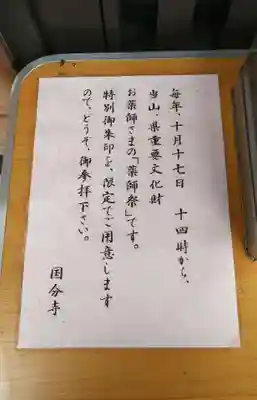 毎年、十月十七日　十四時から、
当山、県重要文化財
お薬師さまの「薬師祭」です。
特別御朱印を、限定でご用意します
ので、どうぞ、御参拝下さい。
国分寺